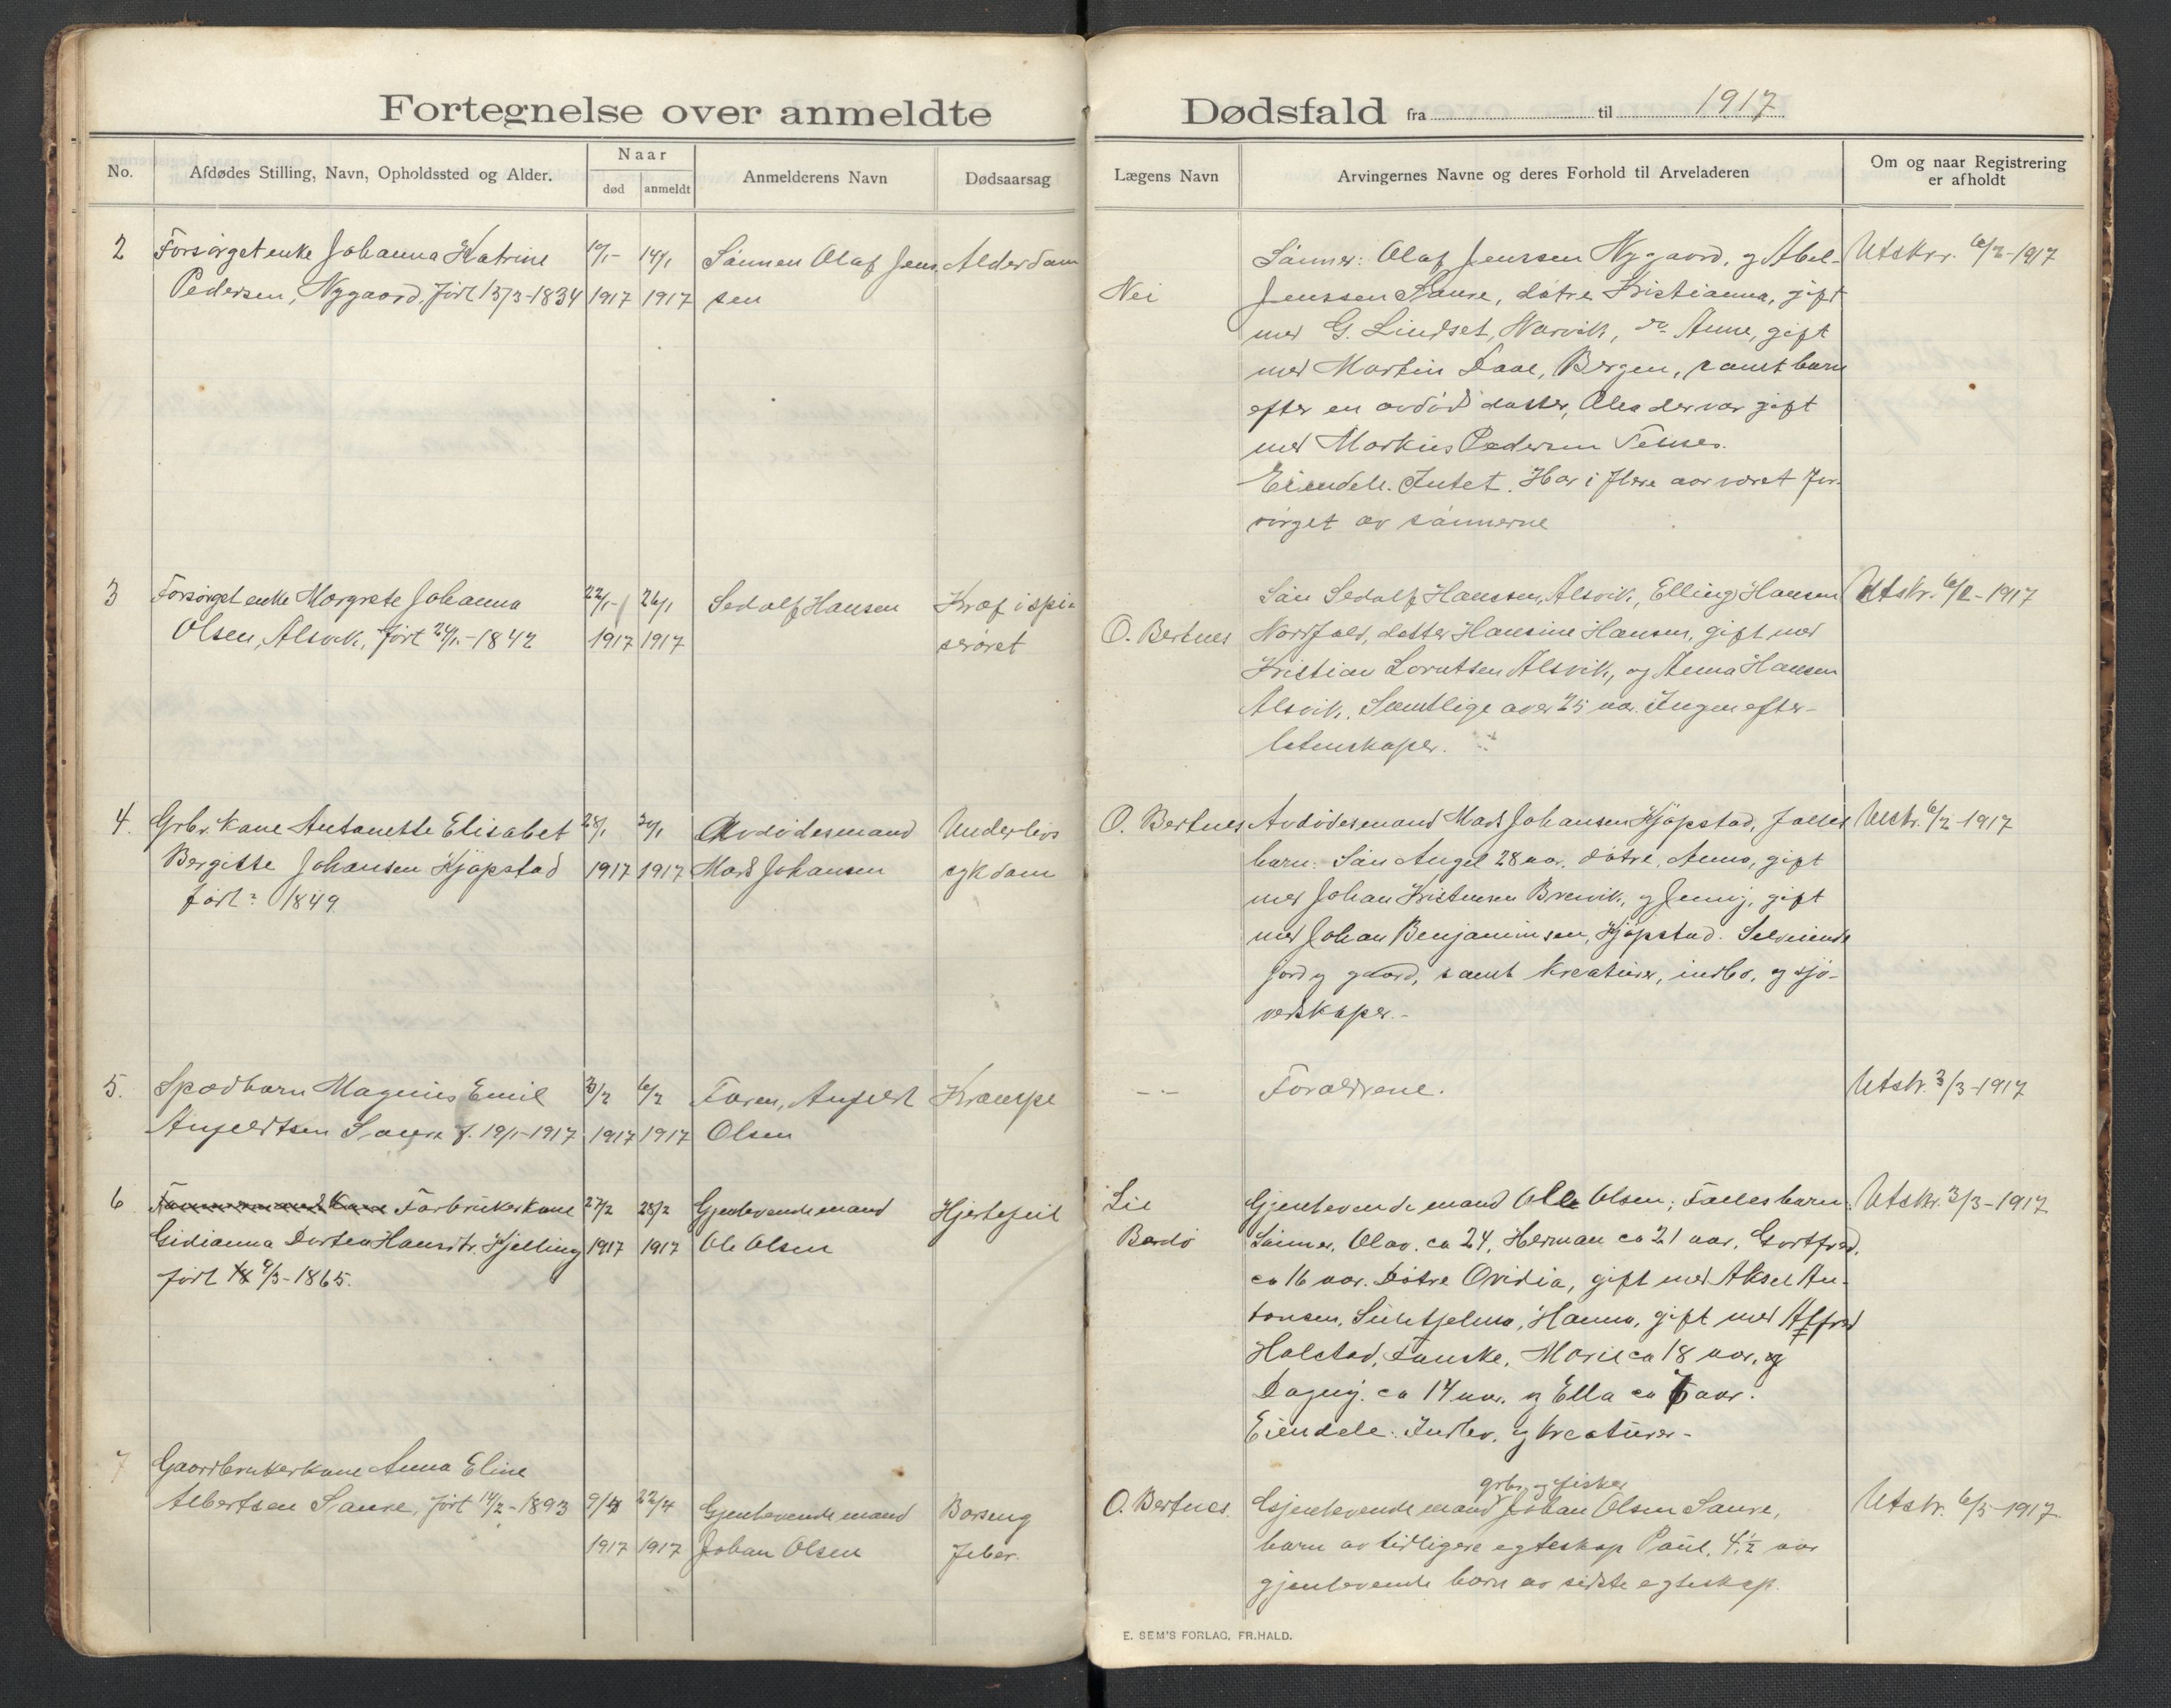 Fortegnelse over anmeldte Dødsfald fra til 1917
No.
Afdødes Stilling, Navn, Opholdssted og Alder.
Naar
død
anmeldt
Anmelderens Navn
Dødsaarsag
Lægens Navn
Arvingernes Navne og deres Forhold til Arveladeren
Om og naar Registrering
er afholdt
2
Forsørget enke Johanna Katrine
Pedersen, Nygaard, født 15/3-1834
1917
14/1
1917
Sønnen Olaf Jens
sen
Alderdom
Nei
Sønner: Olaf Jenssen Nygaard, og Abel
Jenssen Saure, døtre Kristianna, gift
med G. Lindset, Narvik, do Anne, gift
med Martin Daae, Bergen, samt barn
efter en avdød datter, Olea der var gift
med Markus Pedersen
Eiendele. Intet. Har i flere aar været for-
sørget av sønnerne
Utskr. 6/2-1917
3
Forsørget enke Margrete Johanna
Olsen, Alsvik, født 24/1-1842
22/1-
1917
26/1
1917
Sedolf Hansen
Kræf i spi-
serøret
O. Bertnes
Søn Sedolf Hanssen, Alsvik, Elling Hansen
Nordfold, datter Hansine Hansen, gift med
Kristian Lorntsen Alsvik, og Anna Hansen
Alsvik. Samtlige over 25 aar. Ingen efter-
latenskaper.
Utskr. 6/2-1917
4.
Grbr. kone Antonette Elisabet
Bergitte Johansen Kjøpstad
født 1849
28/1
1917
30/1
1917
Avdødes mand
Mads Johansen
Underlivs
sykdom
O. Bertnes
Avdødes mand Mads Johansen Kjøpstad, fælles
barn: Søn Angel 28 aar. døtre, Anna, gift
med Johan Kristensen Brevik, og Jenny, gift
med Johan Benjaminsen, Kjøpstad. Selveiende
jord og gaard, samt kreaturer, indbo, og sjø-
redskaper.-
Utskr. 6/2-1917
5.
Spædbarn Magnus Emil
Anfeldtsen Saure f. 19/1-1917
3/2
1917
6/2
1917
Faren, Anfeldt
Olsen
Krampe
- -
Forældrene.
Utskr. 3/3-1917
6
Forbrukerkone
Gidianna Dortea Hansdtr. Kjelling
født 9/3-1865.
27/2
1917
28/2
1917
Gjenlevende mand
Ole Olsen
Hjertefeil
Lie
Bodø
Gjenlevende mand Ole Olsen; Fælles barn:
Sønner, Olav. ca 24, Herman ca 21 aar, Gortfred.
ca 16 aar. Døtre Ovidia, gift med Aksel An-
tonsen, Sulitjelma, Hanna, gift med Alfred
Halstad, Fauske, Marie ca 18 aar, og
Dagny. ca 14 aar. og Ella ca 6 aar.
Eiendele: Indbo, og kreaturer-
Utskr. 3/3-1917
7
Gaardbrukerkone Anna Eline
Albertsen Saure, født 14/2-1893
9/4
1917
22/4
1917
Gjenlevende mand
Johan Olsen
Barseng
feber.
O. Bertnes.
grbr. og fisker
Gjenlevende mand Johan Olsen Saure,
barn av tidligere egteskap Paul, 4½ aar
gjenlevende barn av sidste egteskap.
Utskr. 6/5-1917.
E. SEM'S FORLAG, FR.HALD.